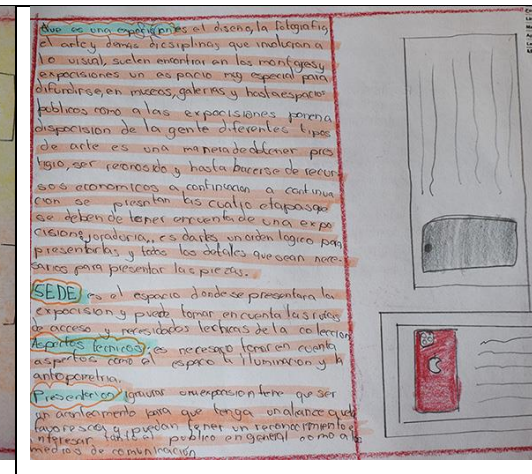 Que es una exposicion: es el diseño, la fotografia,
el arte y demas dicsiplinas que involucran a
lo visual, suelen encontrar en los montajes y
exposiciones un espacio muy especial para
difundirse, en museos, galerias y hasta espacios
publicos como a las expocisiones ponen a
disposcision de la gente diferentes tipos
de arte es una manera de obtener pres
tigio, ser reconosido y hasta hacerse de recur
sos economicos a continuacion a continua
cion se presntan las cuatro etapas que
se deben de tener en cuenta de una expo
cisiong, es darles un orden logico para
presentarlas y todos los detalles que sean nece-
sarios para presentar las piezas.
SEDE: es el espacio donde se presentara la
exposicion y puede tomar en cuenta las rutas
de acceso y necesidades tecnicas de la coleccion
Aspectos tecnicos: es necesario tomar en cuenta
aspectos como el espacio e iluminacion y la
antopometria.
Presentacion: una exposicion tiene que ser
un acontecimiento para que tenga un alcance que le
favoresca y puedan tener un reconocimiento e
interesar tanto al publico en general como a los
medios de comunicación